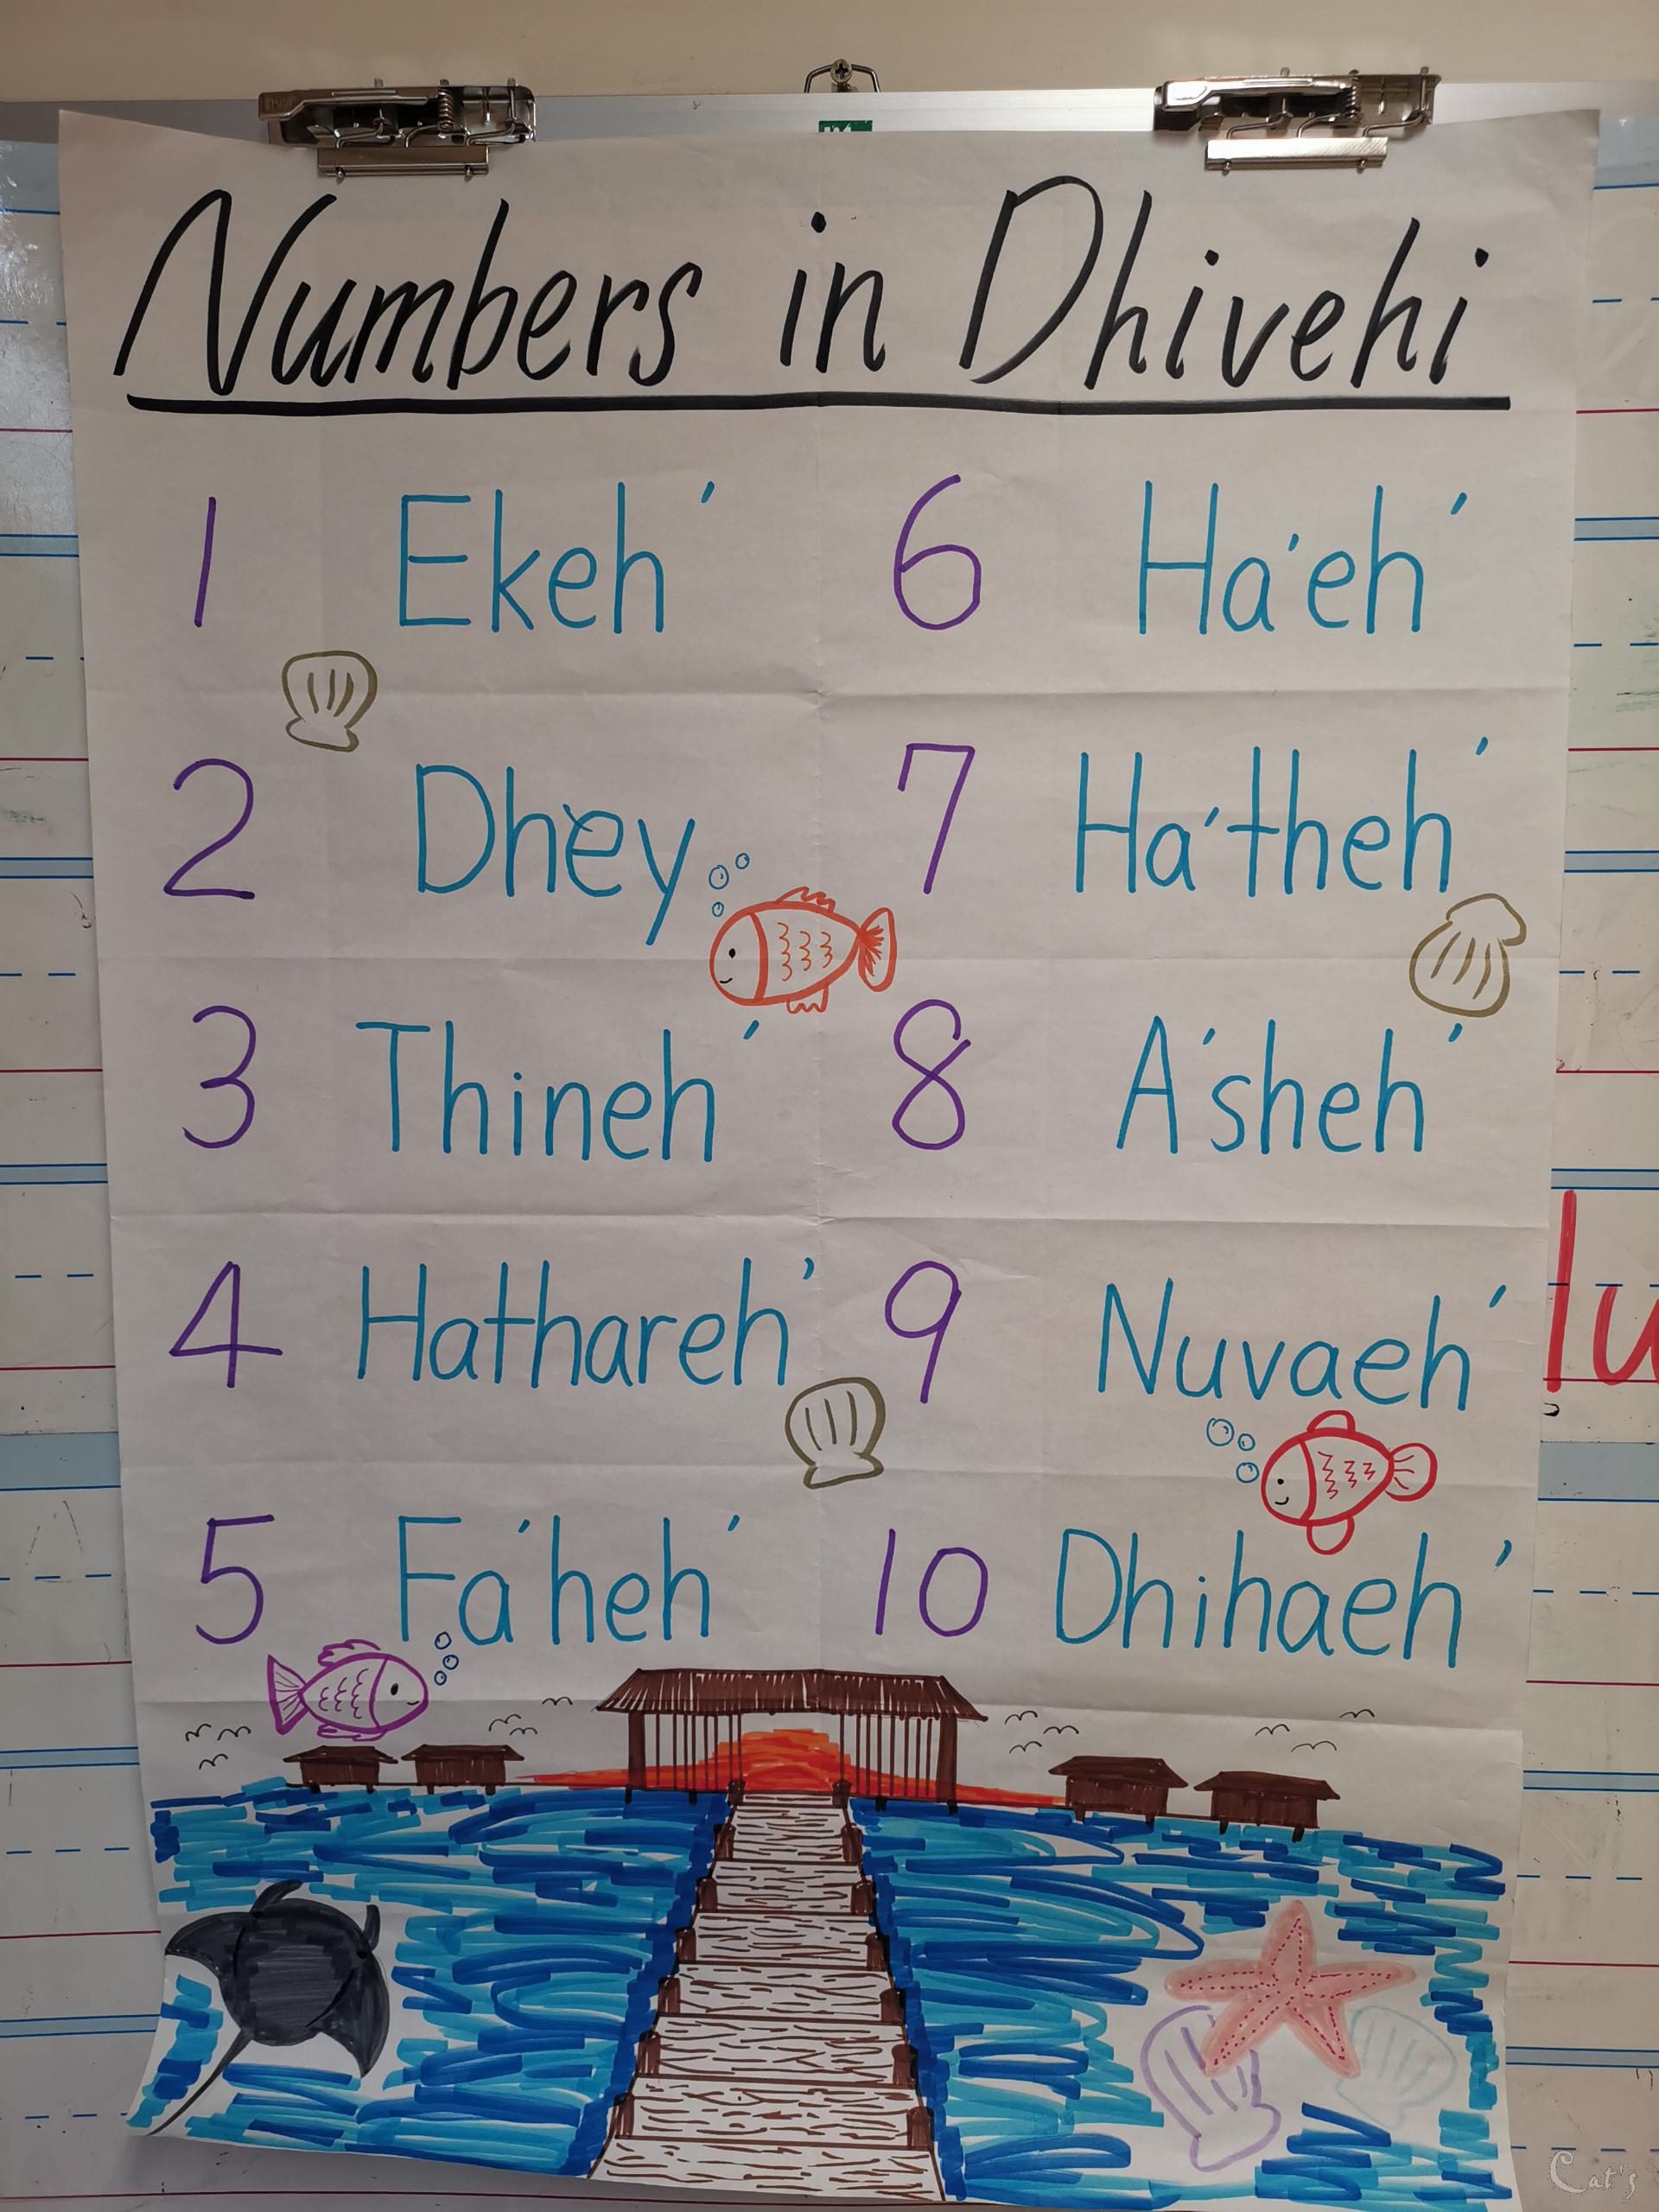 Numbers in Dhivehi
1 Ekeh'
2 Dhey
3 Thineh'
4 Hathareh'
5 Fa'heh'
6 Ha'eh'
7 Ha'theh'
8 A'sheh'
9 Nuvaeh'
10 Dhihaeh'
Cat's